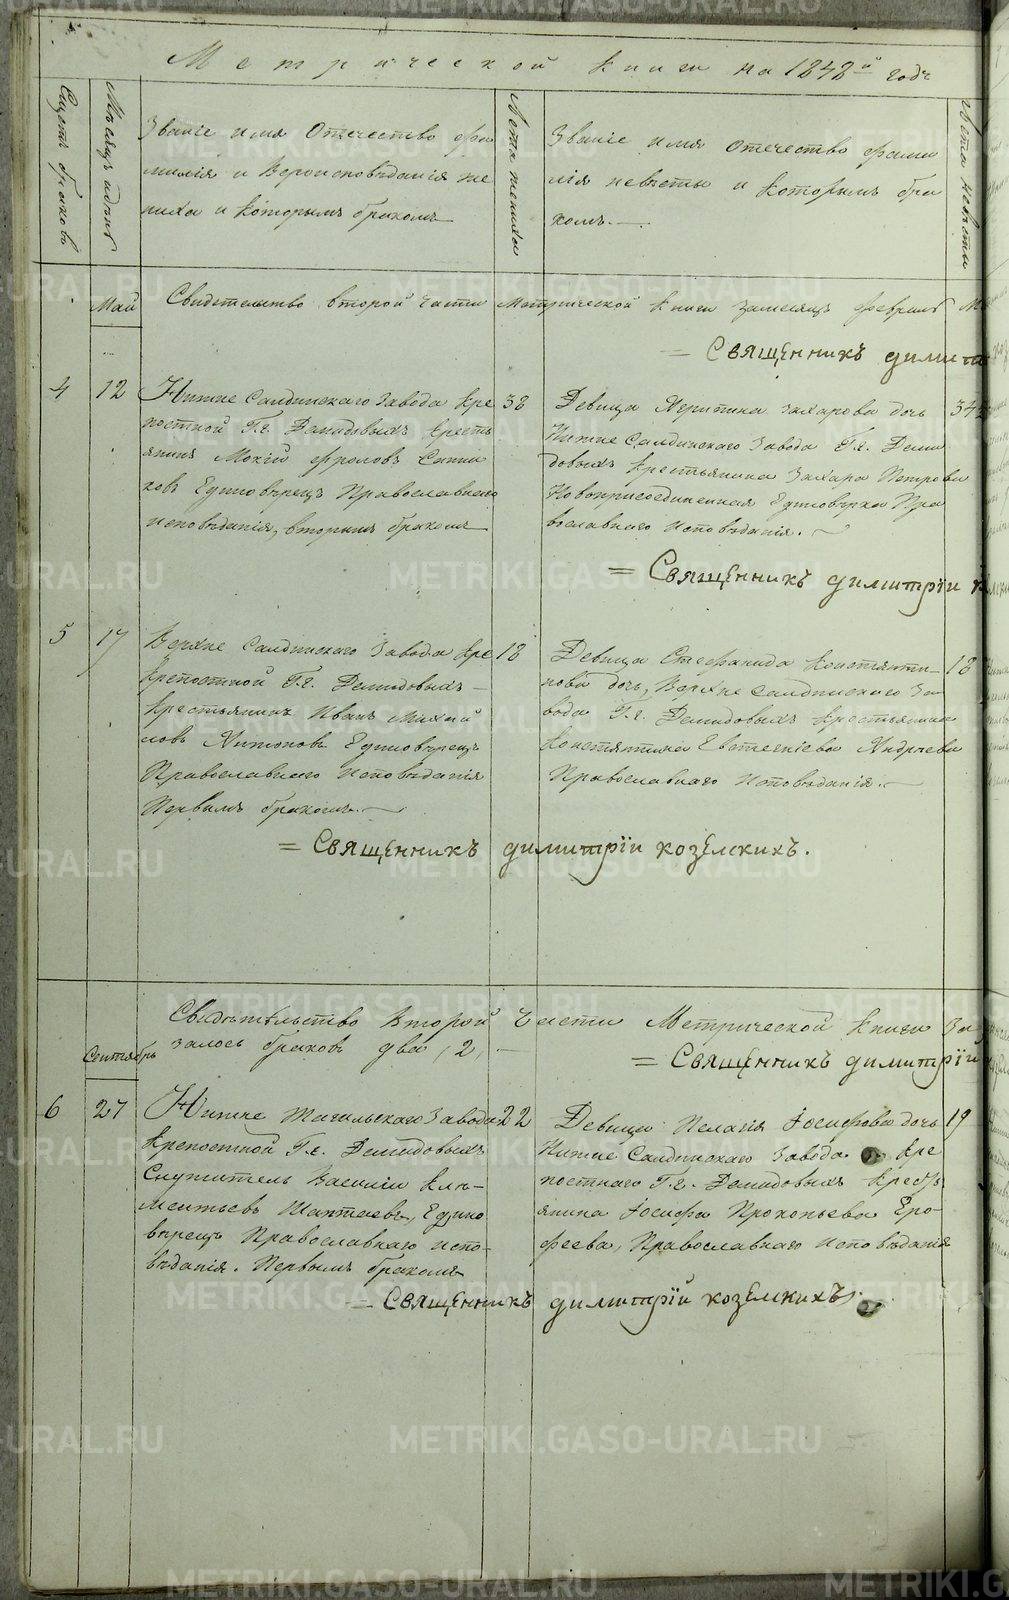 Метрической книги на 1848й годъ
Счетъ браковъ
Мѣсяцъ и день
Званіе имя Отечество фа
милія и Вероисповѣданія же
ниха и которымъ бракомъ
Лета жениха
Званіе имя отечество фами
лія невѣсты и которымъ бра
комъ.
Лета невѣсты
Май
Свидетельство второй части Метрической книги замесяцъ февраль
= Священникъ димит
4
12
Нижне Салдинскаго Завода кре
постной Г.г. Демидовыхъ кресть
янинъ Мокій Фроловъ
ковъ Единовѣрецъ Православнаго
исповѣданія, вторымъ бракомъ
38
Девица Агрипина Захарова дочь
Нижне Салдинскаго Завода Г.г. Деми
довыхъ крестьянина Захара Петрова
Новоприсоединенная Единовѣрка Пра
вославнаго исповѣданія.
34
= Священникъ димитрїи к
5
17
Верхне Салдинскаго Завода кре
крепостной Г.г. Демидовыхъ
крестьянинъ Иванъ Михай
ловъ Антоновъ Единовѣрецъ
Православнаго исповѣданія
Первымъ бракомъ.
18
Девица Стефанида Константи
нова дочь, Верхне салдинскаго За
вода Г.г. Демидовыхъ крестьянина
Константина Евстегніева Андреева
Православнаго исповѣданія.
18
= Священникъ димитрїи козелскихъ.
Свидѣтельство Второй Части Метрической книги За
залось браковъ два, 2,
= Священникъ димитрїй
Сентябрь
6
27
Нижне Тагильскаго Завода
Крепостной Г.г. Демидовыхъ
Служитель Василіи Кли-
ментьевъ Шаптаевъ, Едино
вѣрецъ Православнаго испо-
вѣданія. Первымъ бракомъ
22
Девица Пелагія Іосифова дочь
Нижне Салдинскаго Завода кре
постнаго Г.г. Демидовыхъ Кресть
янина Іосифа Прокопьева Еро-
феева, Православнаго исповѣданія
19
= Священникъ димитрїй козелскихъ.
METRIKI.GASO-URAL.RU